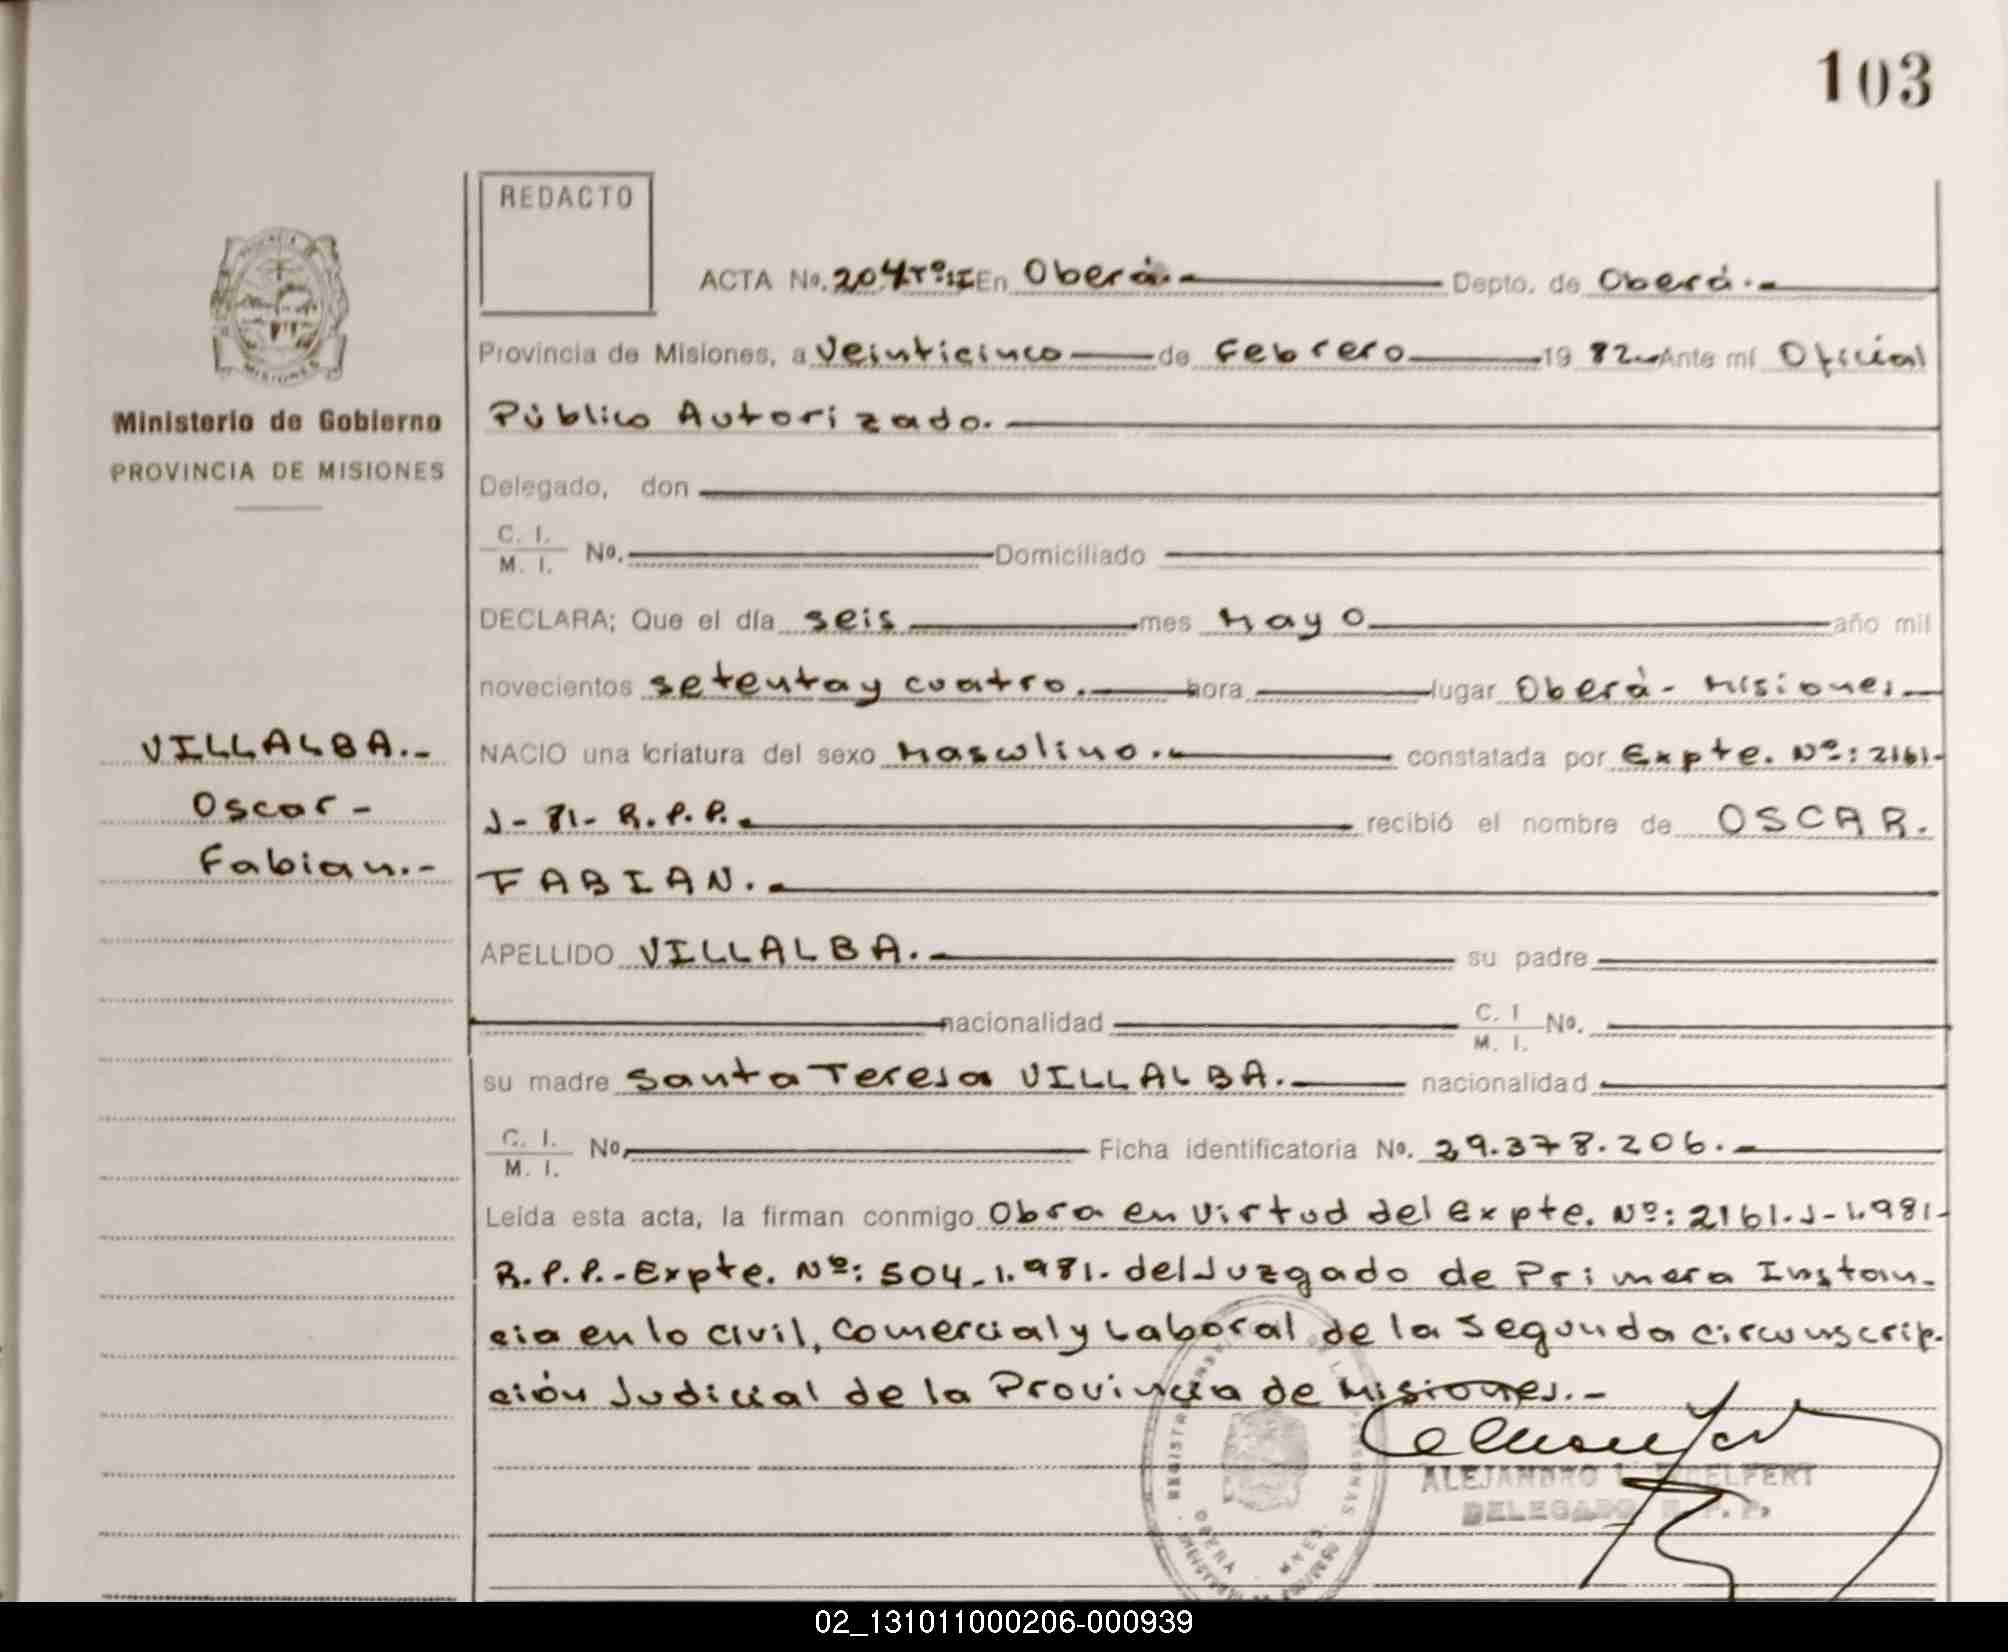 103
REDACTO
ACTA No. 204 Tº:II En Oberá.- Depto. de Oberá.-
Provincia de Misiones, a veinticinco de Febrero 19 82 Ante mí Oficial
Ministerio de Gobierno
Público Autorizado.
PROVINCIA DE MISIONES
Delegado, don
C. I.
M. I. No. Domiciliado
DECLARA; Que el día seis mes Mayo año mil
novecientos setenta y cuatro. hora lugar Oberá - Misiones
VILLALBA.-
NACIO una criatura del sexo Masculino. constatada por Expte. Nº: 2161-
Oscar -
J-81- R.P.P. recibió el nombre de OSCAR.
Fabian.-
FABIAN.
APELLIDO VILLALBA. su padre
nacionalidad C. I. No.
M. I.
su madre Santa Teresa VILLALBA. nacionalidad
C. I.
M. I. No. Ficha identificatoria No. 29.378.206.-
Leída esta acta, la firman conmigo Obra en virtud del Expte. Nº: 2161-J-1.981-
R.P.P.-Expte. Nº: 504-1.981. del Juzgado de Primera Instan-
cia en lo civil, Comercial y Laboral de la Segunda circunscrip-
ción Judicial de la Provincia de Misiones.-
ALEJANDRO
DELEGADO R. P. P.
OBERA
02_131011000206-000939